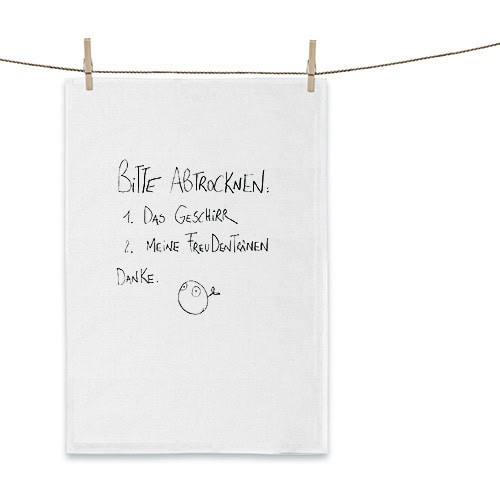 BITTE ABTROCKNEN:
1. DAS GESCHIRR
2. MEINE FREUDENTRÄNEN
DANKE.